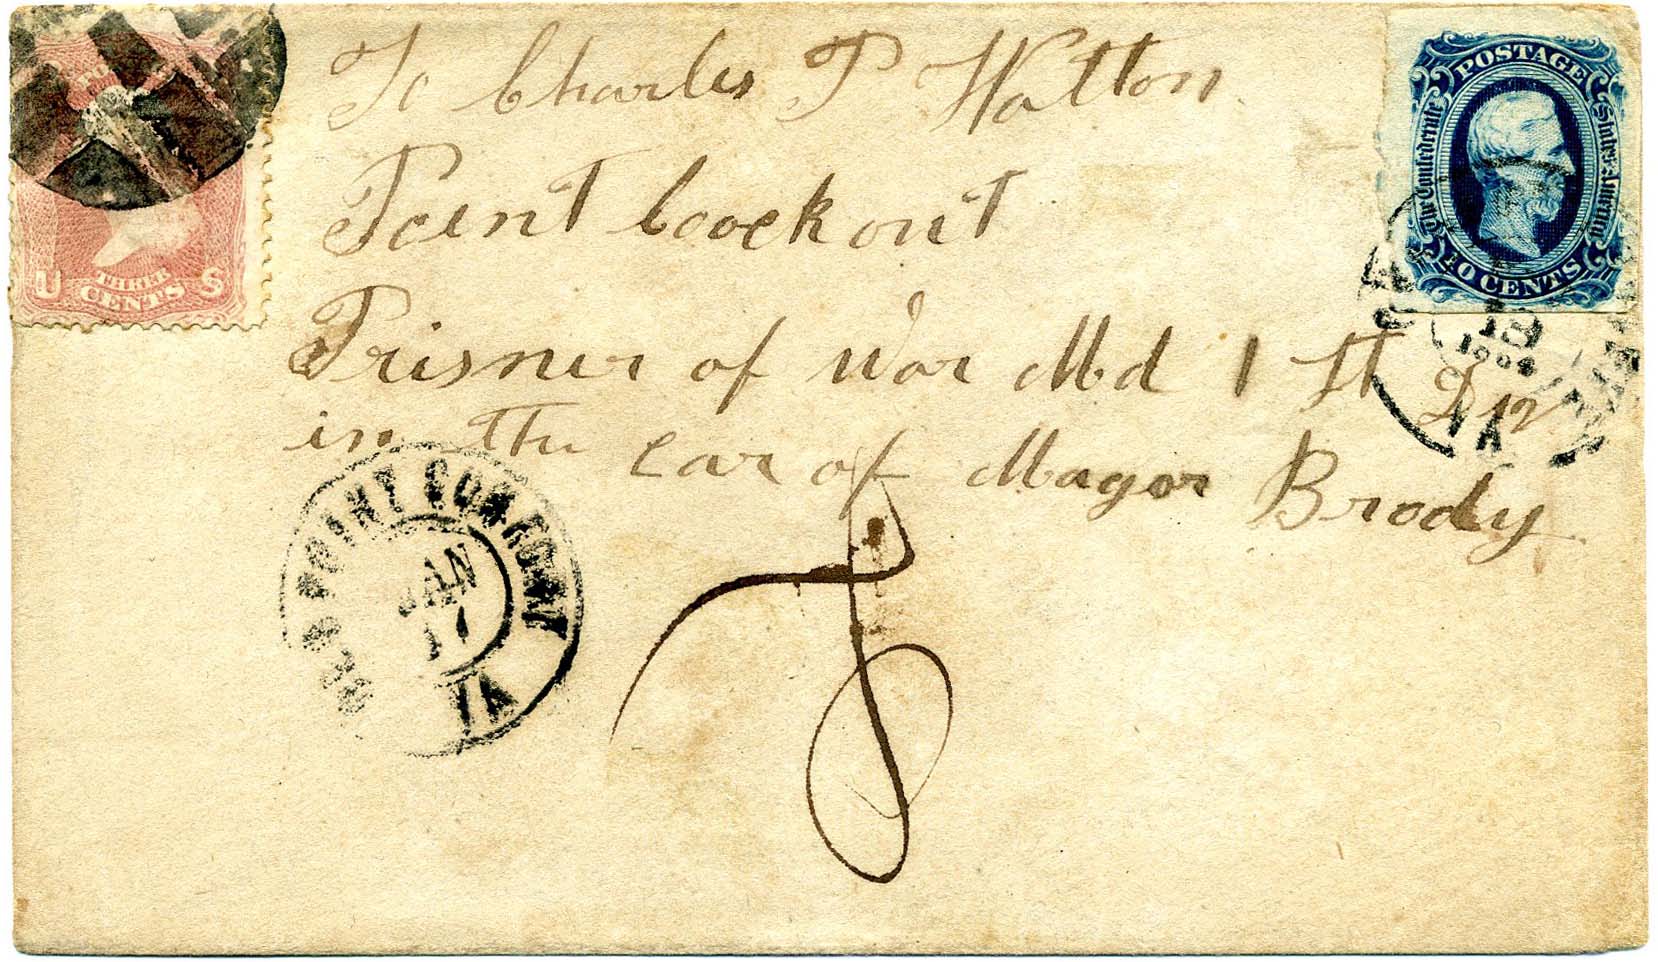 To Charles P Watton
Point Loockout
Prisner of War Md 1 St D 12
in the Car of Magor Brody
U THREE CENTS S
POSTAGE
The Confederate States America
10 CENTS
18
VA
OLD POINT COMFORT
JAN
17
VA